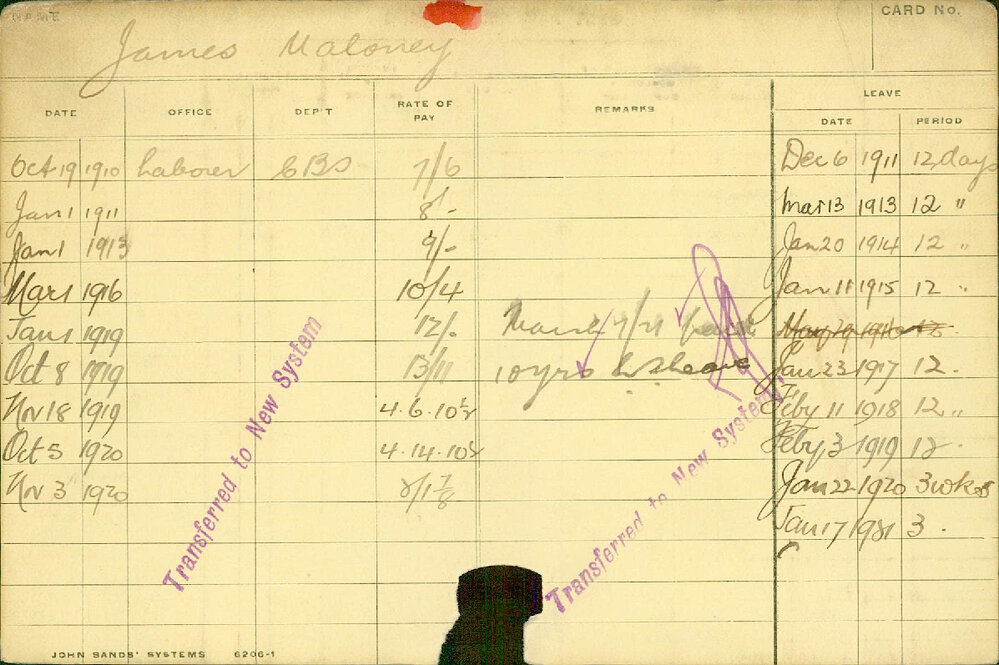 CARD No.
James Maloney
DATE OFFICE DEP'T RATE OF PAY REMARKS LEAVE
DATE PERIOD
Oct 19 1910 Laborer 7/6 Dec 6 1911 12 days
Jan 1 1911 8/- Mar 13 1913 12 "
Jan 1 1913 9/- Jan 20 1914 12 "
Mar 1 1916 10/4 Jan 11 1915 12 "
Jan 1 1919 12/-
Oct 8 1919 13/11 10 yrs Jan 23 1917 12 "
Nov 18 1919 4.6.10½ Feby 11 1918 12 "
Oct 5 1920 4.14.10½ Feby 3 1919 12 "
Nov 3 1920 Jan 22 1920 3 wks
Jan 17 1921 3 "
Transferred to New System
Transferred to New System
JOHN SANDS' SYSTEMS 6206-1